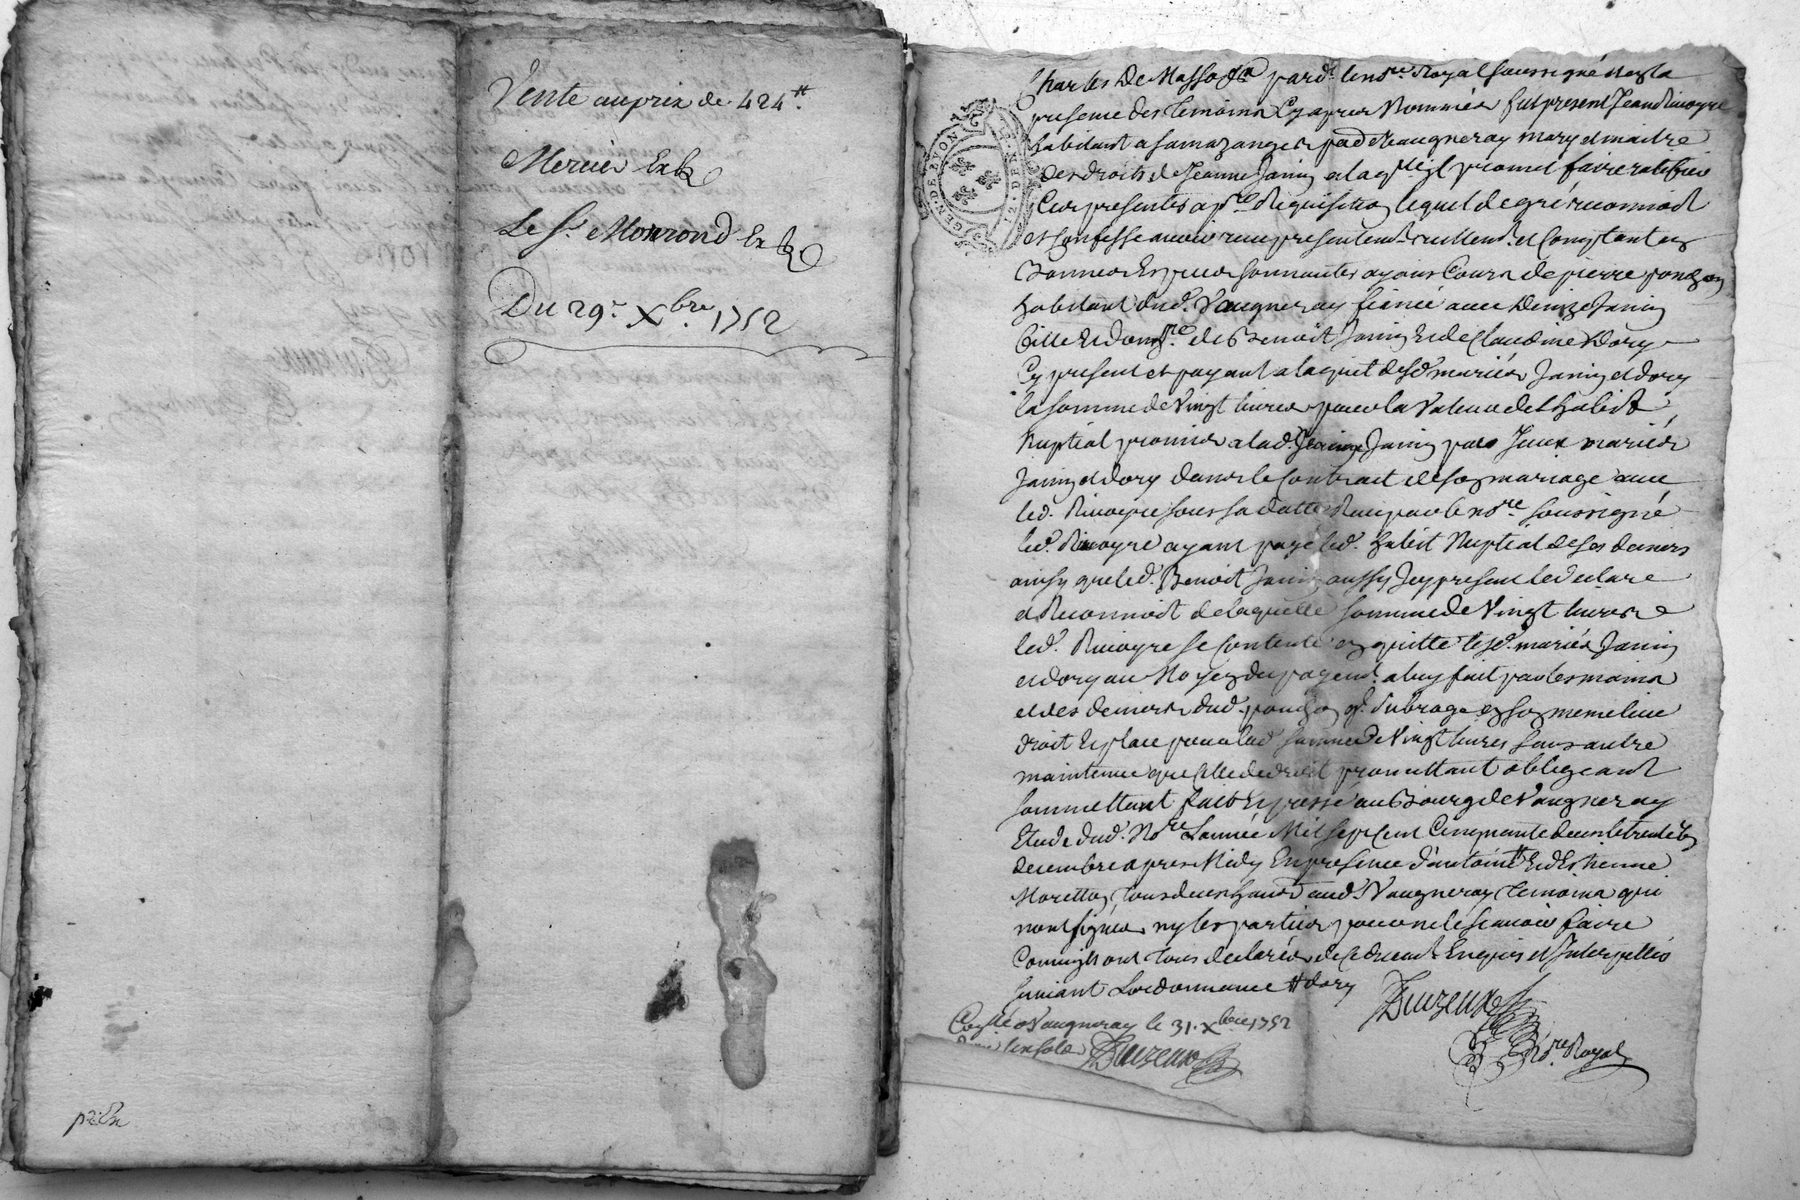 Vente au prix de 424 ₶.
Mercier
Le Sr. Monrond
Du 29e. Xbre. 1752
GEN DE LYON
par dt. le nore. Royal soussigné
presence des temoins cy apres nommés fut present Jean Rivoyre
habitant a paroisse de Vaugneray mary et maitre
des droits de Jeanne Janin a laqlle il promet faire ratiffier
ces presentes a pre. Requisition lequel de gré reconnoit
et confesse avoir reçu presentemt. reellemt. et comptant en
bonnes Especes sonnantes ayans Cours de pierre ponchon
habitant dud. Vaugneray fiancé avec Denize Janin
fille de Benoit Janin et de Claudine Dory
Cy present et payant a l'aquit desd. mariés Janin et dory
la somme de Vingt livres pour la Valeur de Lhabit
Nuptial promis a lad. Jeanne Janin par Iceux mariés
Janin et dory dans le Contract de son mariage avec
led. Rivoyre sous sa datte Reçu par le nore. soussigné
led. Rivoyre ayant payé led. habit Nuptial de ses deniers
ainsy que led. Benoit Janin aussy Icy present le declare
et Reconnoit de laquelle somme de Vingt livres
led. Rivoyre se contente en quitte lesd. mariés Janin
et dory au Moyen du payemt. a luy fait par les mains
et des deniers dud. ponchon subroge en son meme lieu
droit et place pour lad. somme de Vingt livres sans autre
maintenue que celle de droit promettant obligeant
soummettant fait et passé au Bourg de Vaugneray
Etude dud. Nore. L'année Mil sept cent Cinquante deux le trente un
decembre apres Midy En presence d'antoine et d'Etienne
Moretton tous deux aud. Vaugneray temoins qui
n'ont signés ny les parties pour ne le sçavoir faire
Comm'ils ont tous declarés de ce Enquis et Interpellés
suivant Lordonnance dory
nore. Royal
Conllé a Vaugneray le 31. Xbre 1752